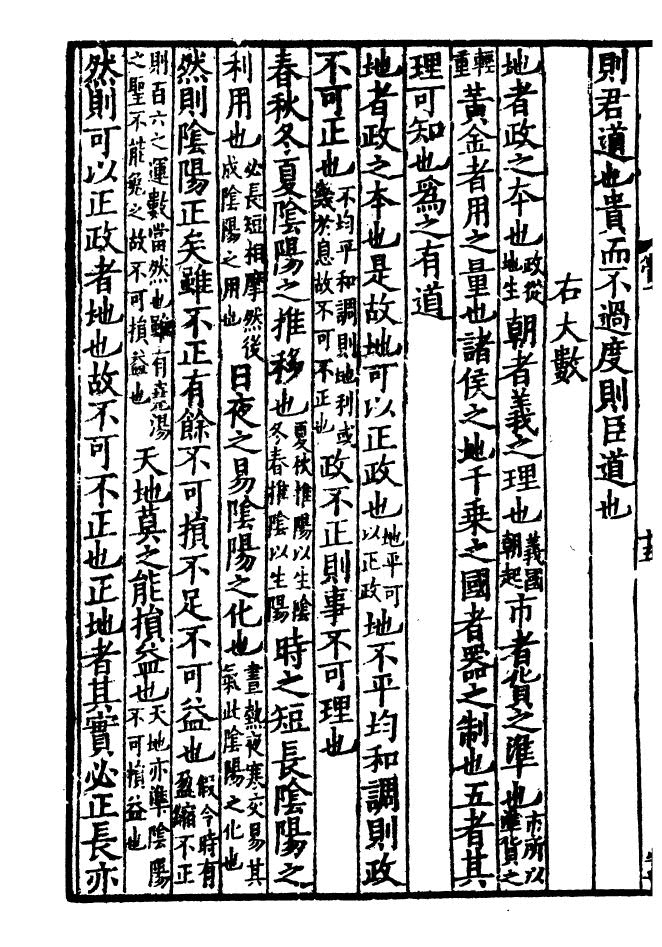 則君道也貴而不過度則臣道也
右大數
地者政之本也政從地生朝者義之理也義國朝起市者貨之準也市所以準貨之
輕重黃金者用之量也諸侯之地千乘之國者器之制也五者其
理可知也爲之有道
地者政之本也是故地可以正政也地平可以正政地不平均和調則政
不可正也不均平和調則地利或幾於息故不可不正也政不正則事不可理也
春秋冬夏陰陽之推移也夏秋推陽以生陰冬春推陰以生陽時之短長陰陽之
利用也必長短相摩然後成陰陽之用也日夜之易陰陽之化也晝熱夜寒交易其氣此陰陽之化也
然則陰陽正矣雖不正有餘不可損不足不可益也假令時有盈縮不正
則百六之運數當然也雖有堯湯之聖不能免之故不可損益也天地莫之能損益也天地亦準陰陽不可損益也
然則可以正政者地也故不可不正也正地者其實必正長亦